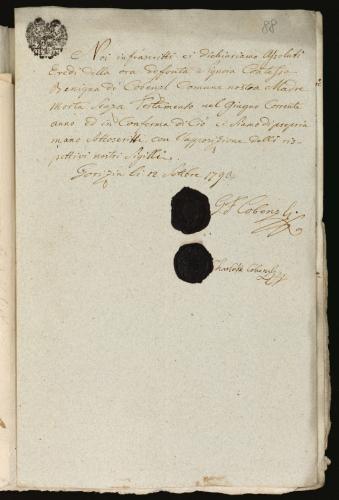 88
E Noi infrascritti ci dichiariamo Assoluti
Eredi della ora defonta Signora Contessa
Benigna di Cobenzl Comune nostra Madre
morta Senza Testamento nel Giugno Corente
anno ed in Conferma di Ciò ci Siamo di propria
mano Sottoscritti con l'apposizione delli ris=
pettivi nostri Sigilli.
Gorizia li 12 1793
Cobenzl
Charlotte Cobenzl